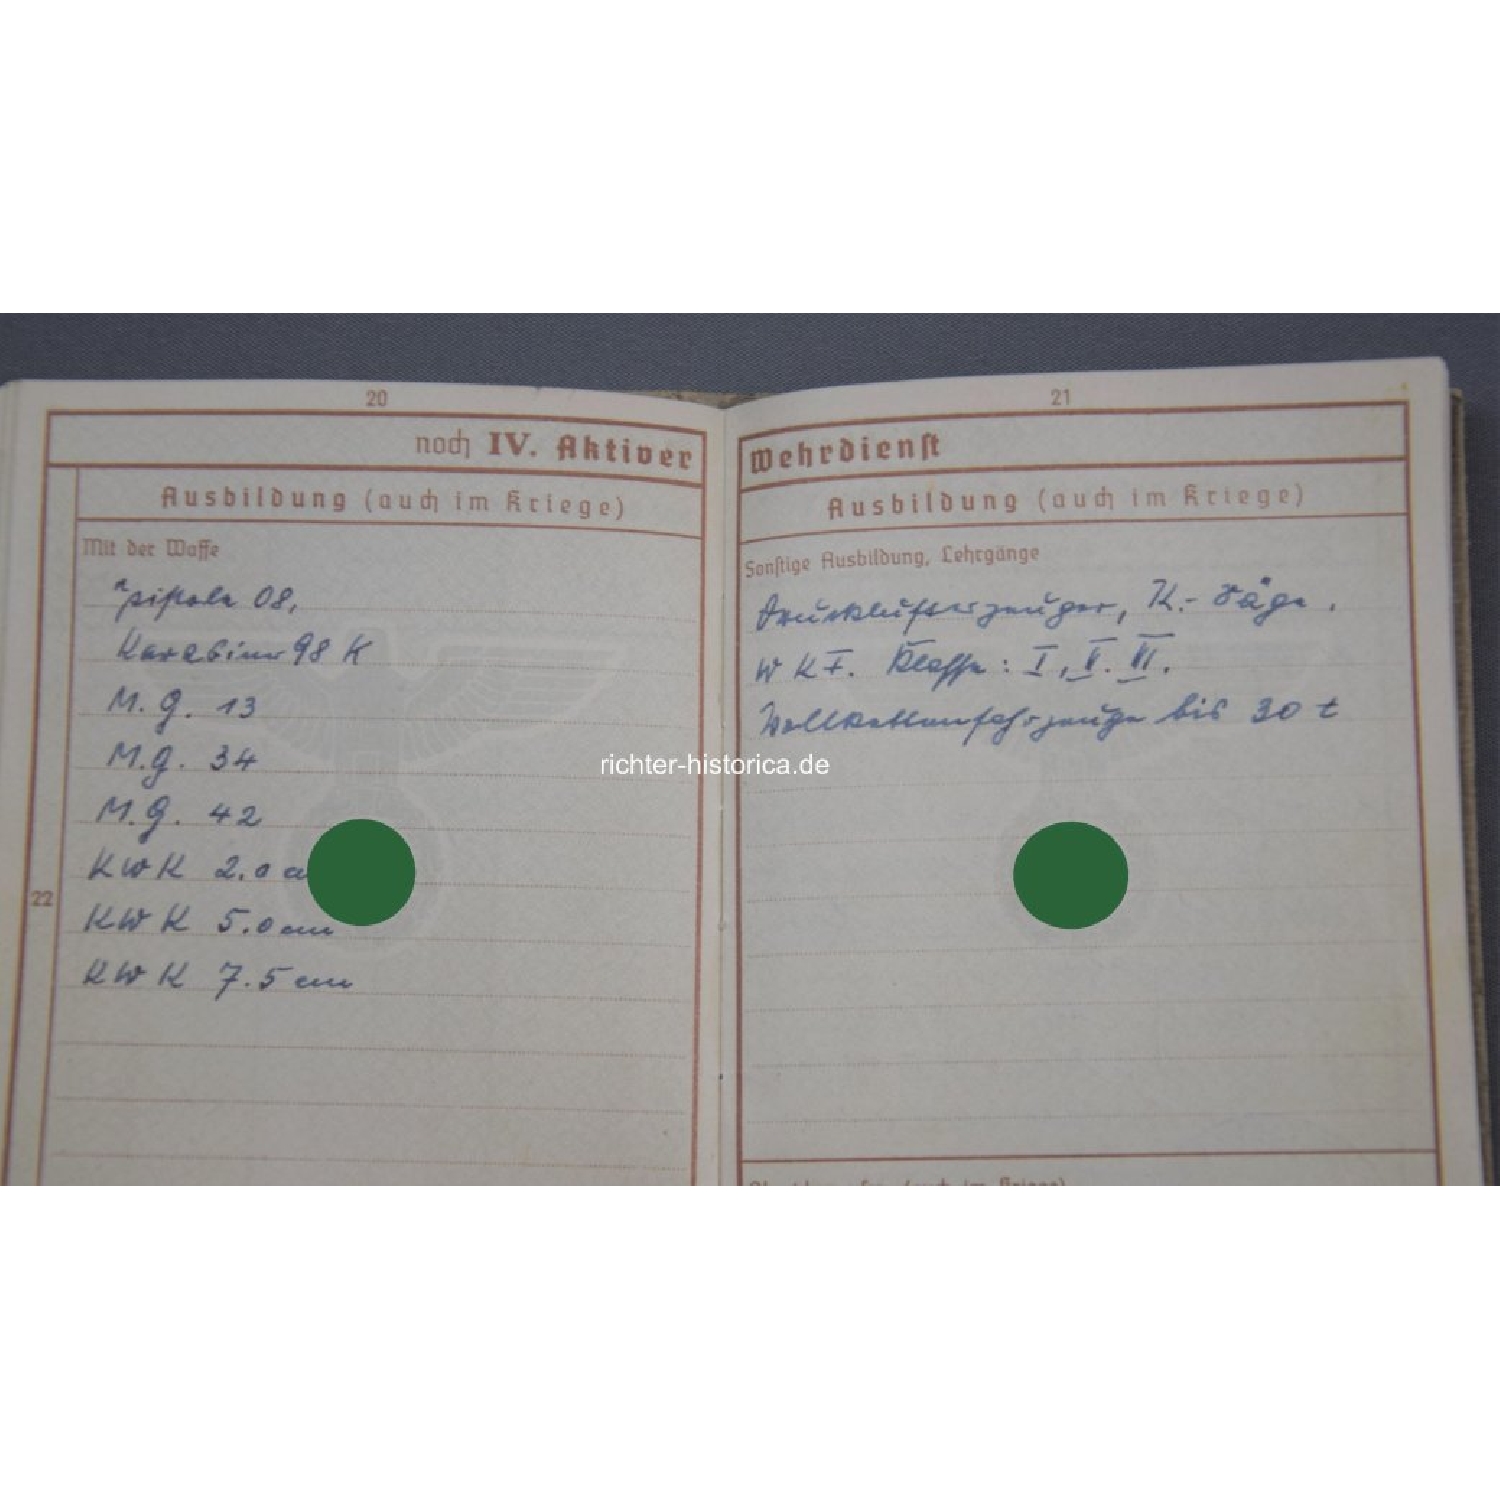 20
noch IV. Aktiver
Ausbildung (auch im Kriege)
Mit der Waffe
Pistole 08,
Karabiner 98 K
M.G. 13
M.G. 34
M.G. 42
KWK 2.0 c
KWK 5.0 cm
KWK 7.5 cm
22
21
Wehrdienst
Ausbildung (auch im Kriege)
Sonstige Ausbildung, Lehrgänge
Drucklufterzeuger, K.-Säge.
W K F. Klasse: I, II. VI.
Vollkettenfahrzeuge bis 30 t
richter-historica.de